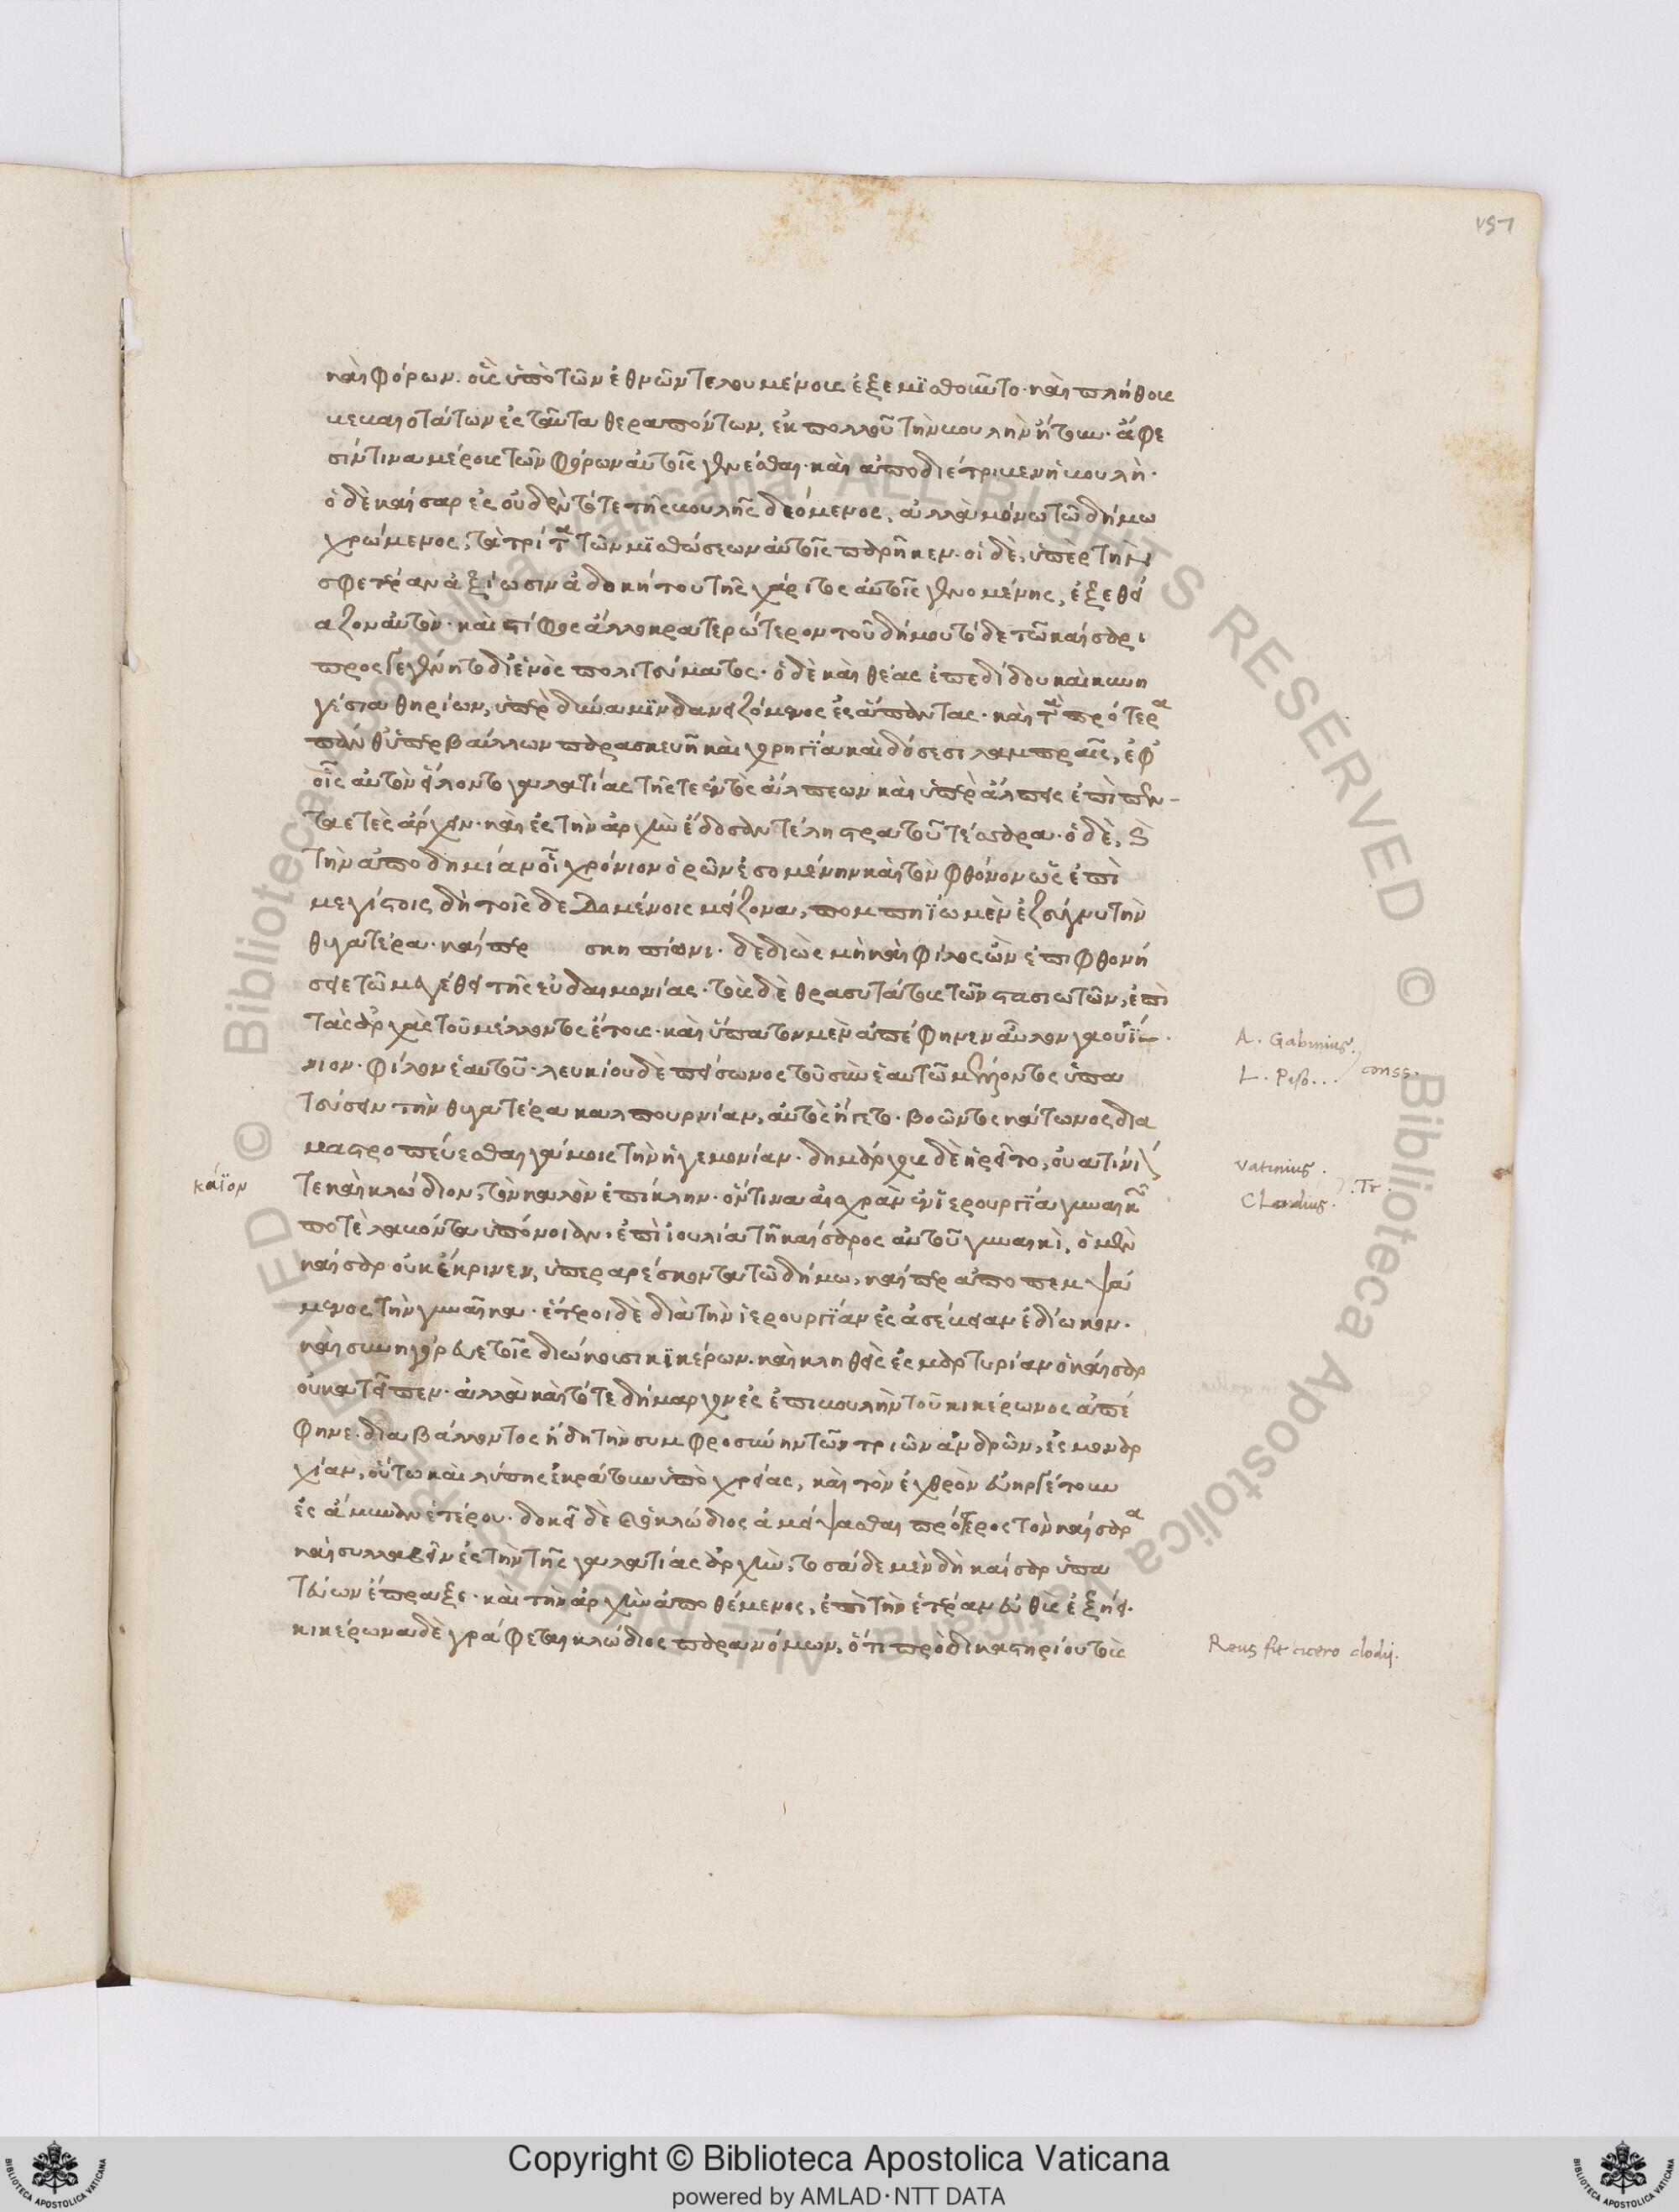 157
καὶ φόρων. οὓς ὑπὸ τῶν ἐθνῶν τελουμένους ἐξεμϊσθοῦντο. καὶ πλήθους
πεπαιστάτων ἐς ταῦτα θεραπόντων, ἐκ πολλοῦ τὴν βουλὴν ᾔτουν. ἄφε
σίν τινα μέρους τῶν φόρων αὐτοῖς γενέσθαι. καὶ ἀπεδιέτριβεν ἡ βουλὴ.
ὁ δὲ καῖσαρ ἐς οὐδὲν τότε τῆς βουλῆς δεόμενος, ἀλλὰ μόνω τῶ δήμω
χρώμενος, τὰ τρίτα τῶν μϊσθώσεων αὐτοῖς παρῆκεν. οἱ δὲ, ὑπὲρ τὴν
σφετέραν ἀξίωσιν ἀδοκήτου τῆς χάριτος αὐτοῖς γενομένης, ἐξεθεί
αζον αὐτὸν. καὶ στίφος ἄλλο κρατερώτερον τοῦ δήμου τόδε τῶ καίσαρι
προσγεγένητο δι' ἑνὸς πολιτεύματος. ὁ δὲ καὶ θέας ἐπεδίδου καὶ κυνη
γέσια θηρίων, ὑπὲρ δύναμϊν δανειζόμενος ἐς ἅπαντας. καὶ τὰ πρότερα
πάνθ' ὑπερβάλλων παρασκευῆ καὶ χορηγία καὶ δόσεσι λαμπραῖς, ἐφ'
οἷς αὐτὸν εἵλοντο γαλατίας τῆς τε ἐντὸς ἄλπεων καὶ ὑπὲρ ἄλπεις ἐπὶ πεν-
ταετὲς ἄρχειν. καὶ ἐς τὴν ἀρχὴν ἔδοσαν τέλη στρατοῦ τέσσαρα. ὁ δὲ, καὶ
τὴν ἀποδημίαν οἷ χρόνιον ὁρῶν ἐσομένην καὶ τὸν φθόνον ὡς ἐπὶ
μεγίστοις δὴ τοῖς δεδομένοις μείζονα, πομπηΐω μὲν ἐζεύγνυ τὴν
θυγατέρα. καίπερ σκηπίωνι. δεδιὼς μὴ καὶ φίλος ὢν ἐπιφθονή
σειε τῶ μεγέθει τῆς εὐδαιμονίας. τοὺς δὲ θρασυτάτους τῶν στασιωτῶν, ἐπὶ
τὰς ἀρχὰς τοῦ μέλλοντος ἔτους. καὶ ὕπατον μὲν ἀπέφηνεν αὖλον γαουΐ
νιον. φίλον ἑαυτοῦ. λευκίου δὲ πείσωνος τοῦ σὺν ἑαυτῶ μέλλοντος ὑπα
τεύσειν τὴν θυγατέρα καλπουρνίαν, αὐτὸς ἤγετο. βοῶντος κάτωνος δια
μαστροπεύεσθαι γάμοις τὴν ἡγεμονίαν. δημάρχους δὲ ᾑρεῖτο, οὐατίνι
τε καὶ κλώδιον, τὸν καλὸν ἐπίκλην. ὅντινα αἰσχρὰν ἐν ἱερουργία γυναικῶν
ποτὲ λαβόντα ὑπόνοιαν. ἐπὶ ἰουλία τῆ καίσαρος αὐτοῦ γυναικὶ, ὁ μὲν
καῖσαρ οὐκ ἔκρινεν, ὑπεραρέσκοντα τῶ δήμω, καίπερ ἀποπεμψά
μενος τὴν γυναῖκα. ἕτεροι δὲ διὰ τὴν ἱερουργίαν ἐς ἀσέβειαν ἐδίωκον.
καὶ συνηγόρευε τοῖς διώκουσι κϊκέρων. καὶ κληθεὶς ἐς μαρτυρίαν ὁ καῖσαρ
οὐ κατεῖπεν. ἀλλὰ καὶ τότε δήμαρχον ἐς ἐπιβουλὴν τοῦ κικέρωνος ἀπέ
φηνε. διαβάλλοντος ἤδη τὴν συμφροσύνην τῶν τριῶν ἀνδρῶν, ἐς μοναρ
χίαν, οὕτω καὶ λύπης ἐκράτουν ὑπὸ χρείας, καὶ τὸν ἐχθρὸν εὐηργέτουν
ἐς ἄμυναν ἑτέρου. δοκεῖ δὲ καὶ ὁ κλώδιος ἀμείψασθαι πρότερος τὸν καίσαρα
καὶ συλλαβεῖν ἐς τὴν τῆς γαλατίας ἀρχὴν, τοσάδε μὲν δὴ καῖσαρ ὑπα
τεύων ἔπραξε. καὶ τὴν ἀρχὴν ἀποθέμενος, ἐπὶ τὴν ἑτέραν εὐθὺς ἐξήει.
κικέρωνα δὲ γράφεται κλώδιος παρανόμων, ὅτι πρὸ δικαστηρίου τοὺς
A. Gabinius.
L. Piso...
conss.
Vatinius.
Clodius.
.Tr.
κάϊον
Reus fit cicero clodij.
Copyright © Biblioteca Apostolica Vaticana
powered by AMLAD·NTT DATA